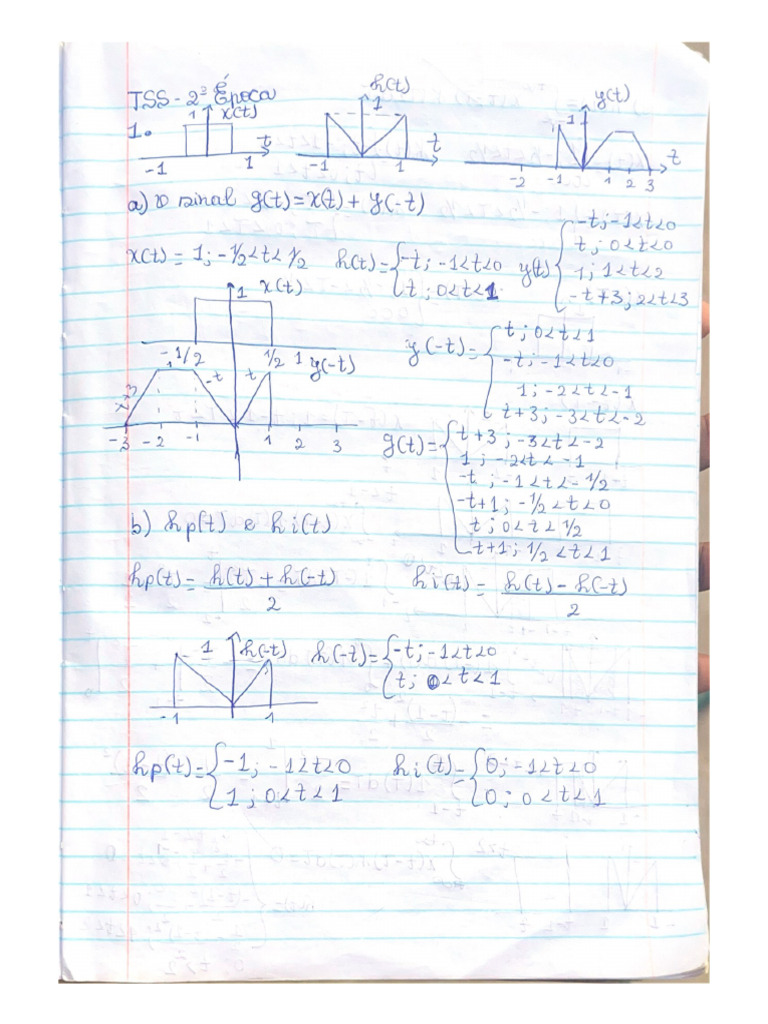 TSS - 2ª Época
1. 1 x(t) t -1 1
h(t) 1 t -1 1
y(t) 1 t -2 -1 1 2 3
a) O sinal g(t) = x(t) + y(-t)
x(t) = 1; -1/2<t<1/2
h(t) = { -t; -1<t<0
t; 0<t<1
y(t) { -t; -1<t<0
t; 0<t<0
1; 1<t<2
-t+3; 2<t<3
1 x(t)
-1/2 1/2 1
y(-t)
t+3 1 -t t
-3 -2 -1 1 2 3
y(-t) = { t; 0<t<1
-t; -1<t<0
1; -2<t<-1
t+3; -3<t<-2
g(t) = { t+3; -3<t<-2
1; -2<t<-1
-t; -1<t<-1/2
-t+1; -1/2<t<0
t; 0<t<1/2
t+1; 1/2<t<1
b) hp(t) e hi(t)
hp(t) = h(t) + h(-t) / 2
hi(t) = h(t) - h(-t) / 2
1 h(-t)
-1 1
h(-t) = { -t; -1<t<0
t; 0<t<1
hp(t) = { -1; -1<t<0
1; 0<t<1
hi(t) = { 0; -1<t<0
0; 0<t<1